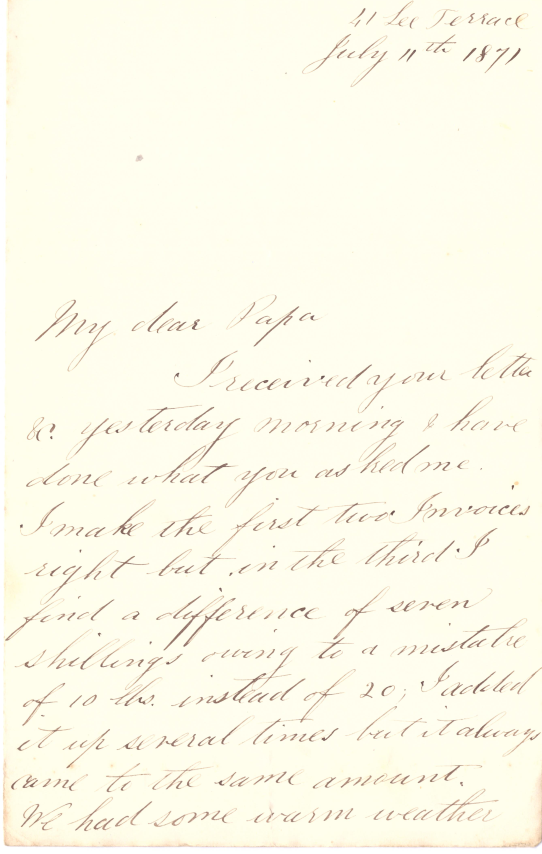 41 Lee Terrace
July 11th 1871
My dear Papa
I received your letter
&c. yesterday morning & have
done what you asked me.
I make the first two Invoices
right but in the third I
find a difference of seven
shillings owing to a mistake
of 10 lbs. instead of 20; I added
it up several times but it always
came to the same amount.
We had some warm weather